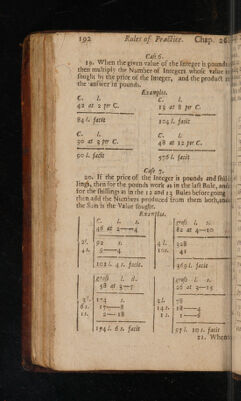 192 Rules of Practice. Chap. 26.
Case 6.
19. When the given value of the Integer is pounds
then multiply the Number of Integers whose value is
sought by the price of the Integer, and the product is
the answer in pounds.
Examples.
C. l. C. l.
42 at 2 per C. 13 at 8 per C.
84 l. facit 104 l. facit
C. l. C. l.
30 at 3 per C. 48 at 12 per C.
90 l. facit 576 l. facit
Case 7.
20. If the price of the Integer is pounds and shil-
lings, then for the pounds work as in the last Rule, and
for the shillings as in the 12 and 13 Rules before going
then add the Numbers produced from them both, and
the Sum is the Value sought.
Examples.
C. l. s. gross l. s.
48 at 2—4 82 at 4—10
2 l. 4 l. 328
4 s. 10 s. 41
facit. 369 l. facit
gross l. s. gross l. s.
58 at 3—7 26 at 3—15
3 l. 174 3 l. 78
6 s. 17—8 14 s. 18—4
1 s. 2—18 1 s. 1—6
194 l. 6 s. facit 97 l. 10 s. facit
21. When